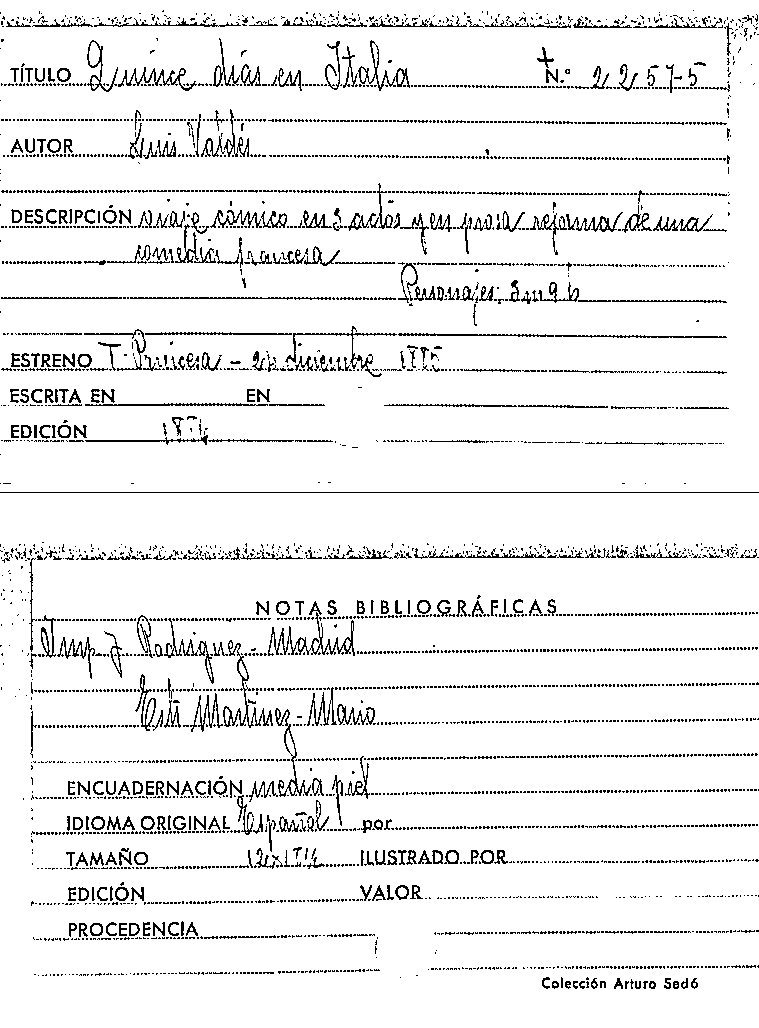 TÍTULO Quince días en Italia N.º 2257-5
AUTOR Luis Valdés
DESCRIPCIÓN viaje cómico en 3 actos y en prosa reforma de una
comedia francesa
Personajes: 3 m 9 h
ESTRENO T. Princesa - diciembre
ESCRITA EN EN
EDICIÓN
NOTAS BIBLIOGRÁFICAS
Imp J Rodriguez - Madrid
Martinez - Mario
ENCUADERNACIÓN media piel
IDIOMA ORIGINAL Español por
TAMAÑO ILUSTRADO POR
EDICIÓN VALOR
PROCEDENCIA
Colección Arturo Sedó